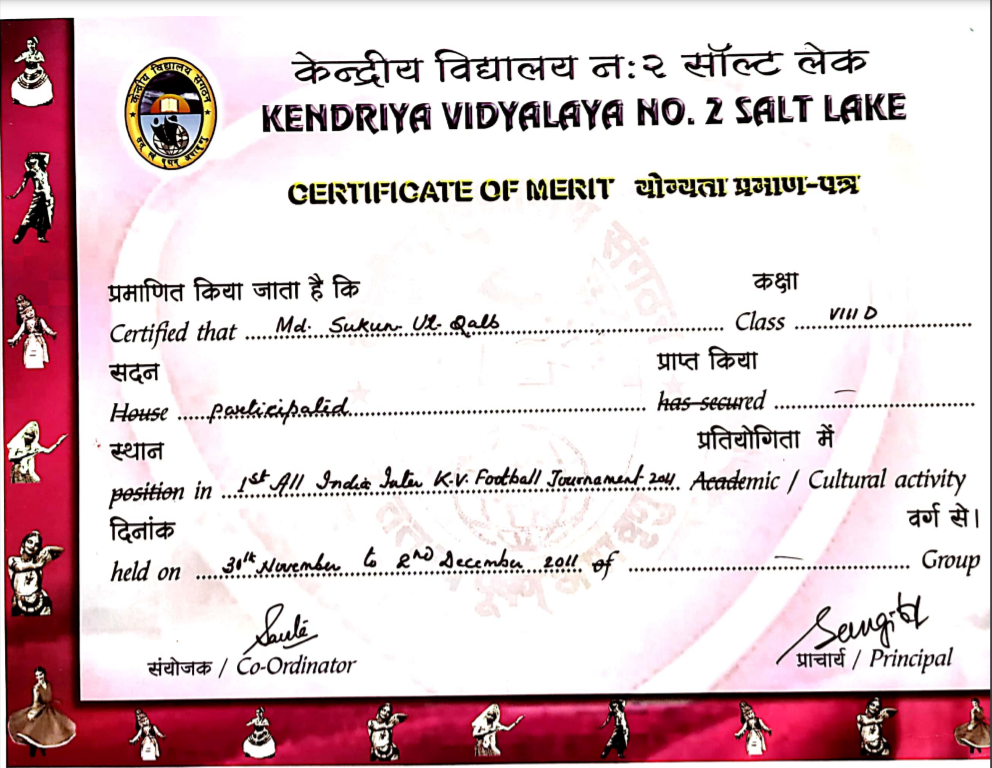 केन्द्रीय विद्यालय न: २ सॉल्ट लेक
KENDRIYA VIDYALAYA NO. 2 SALT LAKE
CERTIFICATE OF MERIT योग्यता प्रमाण-पत्र
प्रमाणित किया जाता है कि कक्षा
Certified that Md. Sukun Ul Qalb Class VIII D
सदन प्राप्त किया
House participated has secured —
स्थान प्रतियोगिता में
position in 1st All India Inter K.V. Football Tournament 2011. Academic / Cultural activity
दिनांक वर्ग से।
held on 30th November to 2nd December 2011 of — Group
संयोजक / Co-Ordinator प्राचार्य / Principal